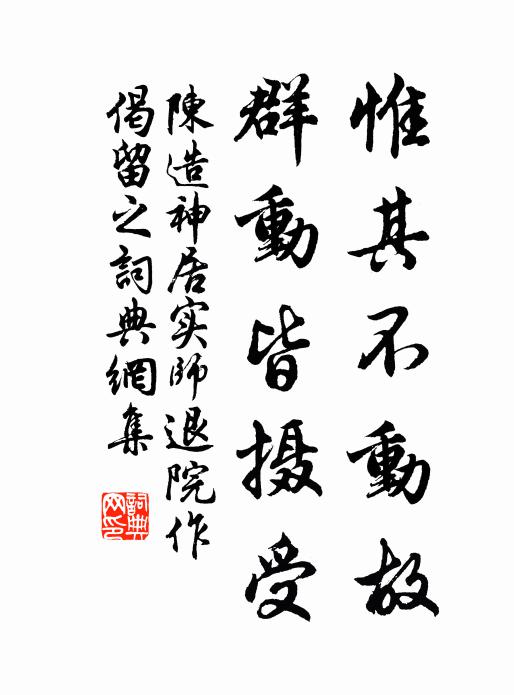 惟其不動故
群動皆摄受
陳造神居实师退院作
偈留之詞典網集
詞典网印